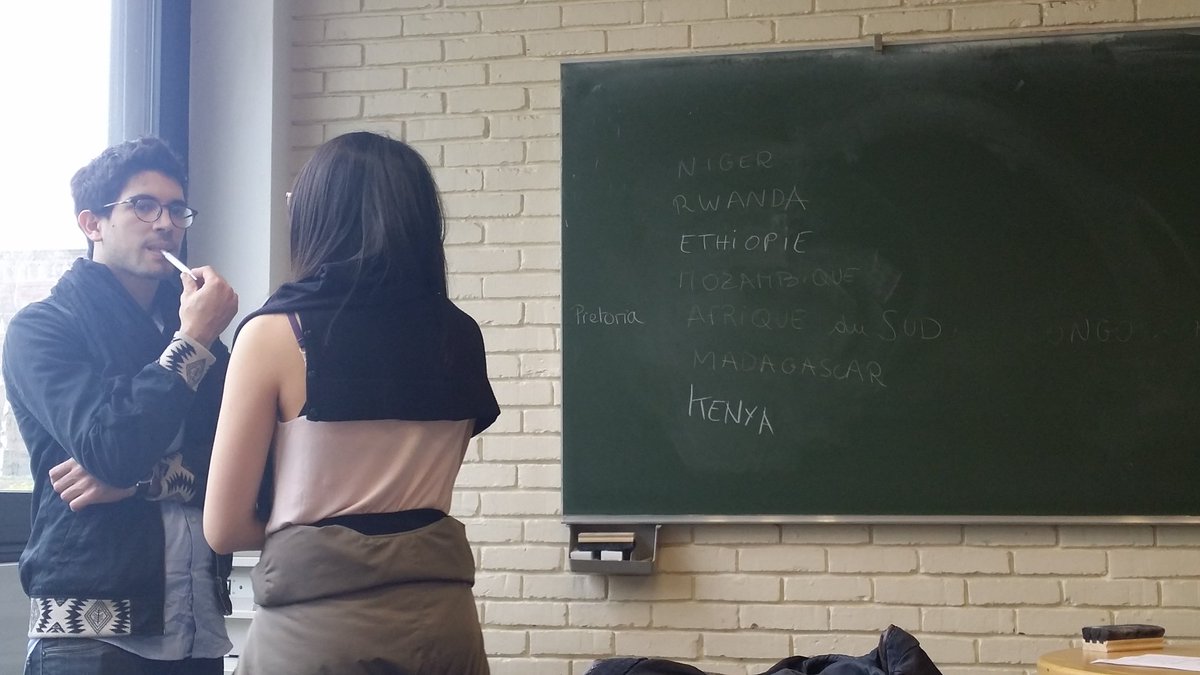 NIGER
RWANDA
ETHIOPIE
MOZAMBIQUE
Pretoria AFRIQUE du SUD
MADAGASCAR
KENYA